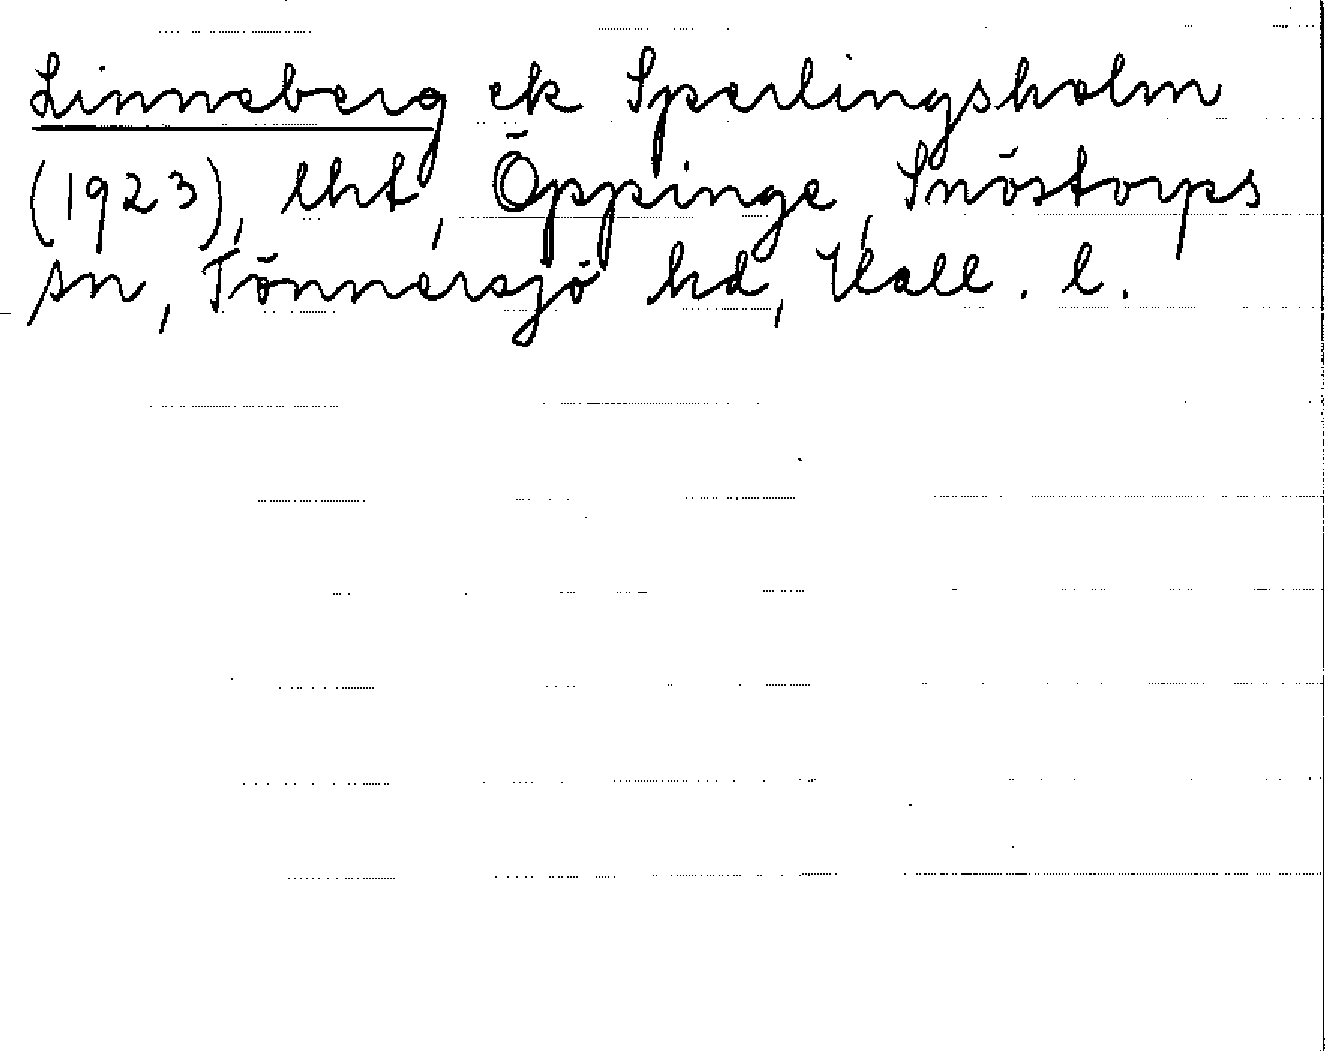 Linneberg ek Sperlingsholm
(1923), lht, Öppinge, Snöstorps
sn, Tönnersjö hd, Hall. l.